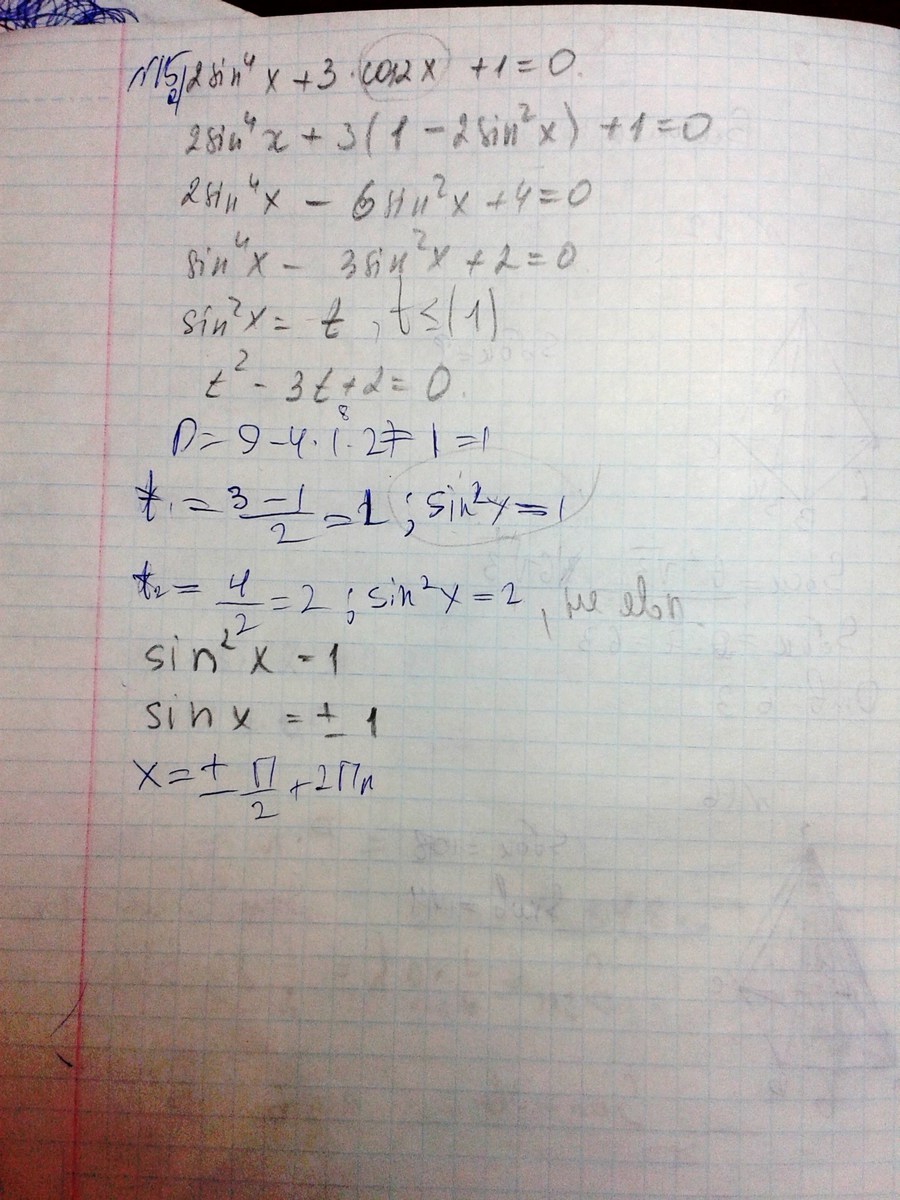 №15 a) 2sin⁴x + 3·cos2x + 1 = 0.
2sin⁴x + 3(1 − 2sin²x) + 1 = 0
2sin⁴x − 6sin²x + 4 = 0
sin⁴x − 3sin²x + 2 = 0
sin²x = t, t ≤ (1)
t² − 3t + 2 = 0.
8
D = 9 − 4·1·2 = 1 = 1
t₁ = (3 − 1)/2 = 1 ; sin²x = 1
t₂ = 4/2 = 2 ; sin²x = 2, не
sin²x = 1
sin x = ± 1
x = ± П/2 + 2Пn